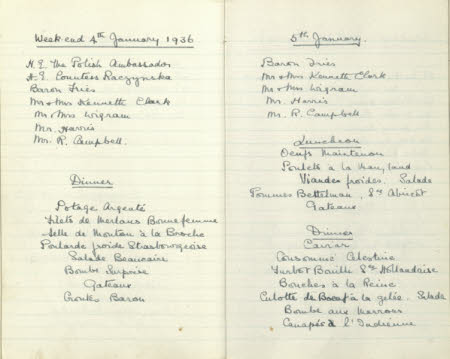 Week-end 4th January 1936
H.E. The Polish Ambassador
H.E. Countess Raczynska
Baron Fries
Mr & Mrs Kenneth Clark
Mr & Mrs Wigram
Mr. Harris
Mr. R. Campbell.
Dinner
Potage Argenté
Filets de Merlans Bonnefemme
Selle de Mouton à la Broche
Poularde froide Strasbourgeoise
Salade Beaucaire
Bombe Surprise
Gateaux
Croutes Baron
5th January.
Baron Fries
Mr & Mrs Kenneth Clark.
Mr & Mrs Wigram
Mr. Harris
Mr. R. Campbell
Luncheon
Oeufs Maintenon
Poulets à la Maryland
Viandes froides. Salade
Pommes Bettelman, Sce Abricot
Gateaux
Dinner
Caviar
Consommé Celestine
Turbot Bouilli Sce Hollandaise
Bouchées à la Reine
Culotte de Boeuf à la gelée. Salade
Bombe aux Marrons
Canapés à l'Indienne